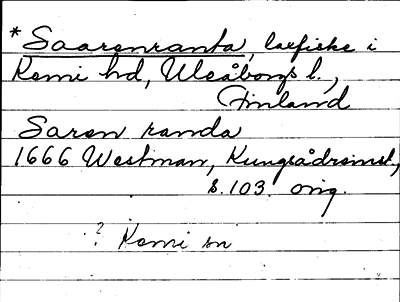 *Saarenranta, laxfiske i
Kemi hd, Uleåborgs l.,
Finland
Saren randa
1666 Westman, Kungsådreinst.,
s. 103. orig.
? Kemi sn